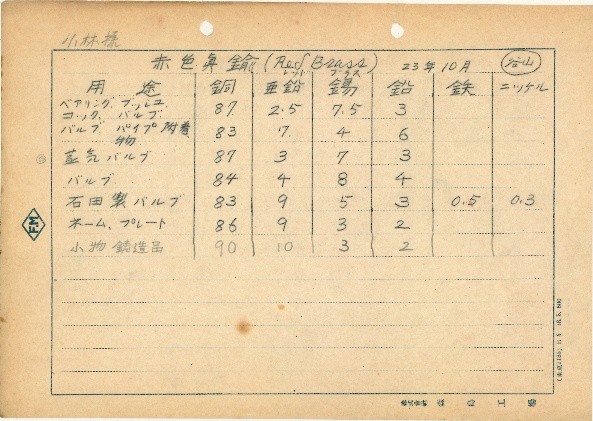 小林様
赤色真鍮(Red Brass) 23年10月 谷山
レッド ブラス
用途 銅 亜鉛 錫 鉛 鉄 ニッケル
ベアリング、ブッシュ
コック、バルブ 87 2.5 7.5 3
バルブ パイプ附着
物 83 7 4 6
蒸気バルブ 87 3 7 3
バルブ 84 4 8 4
石田製バルブ 83 9 5 3 0.5 0.3
ネーム、プレート 86 9 3 2
小物鋳造品 90 10 3 2
FM
株式会社 島工場